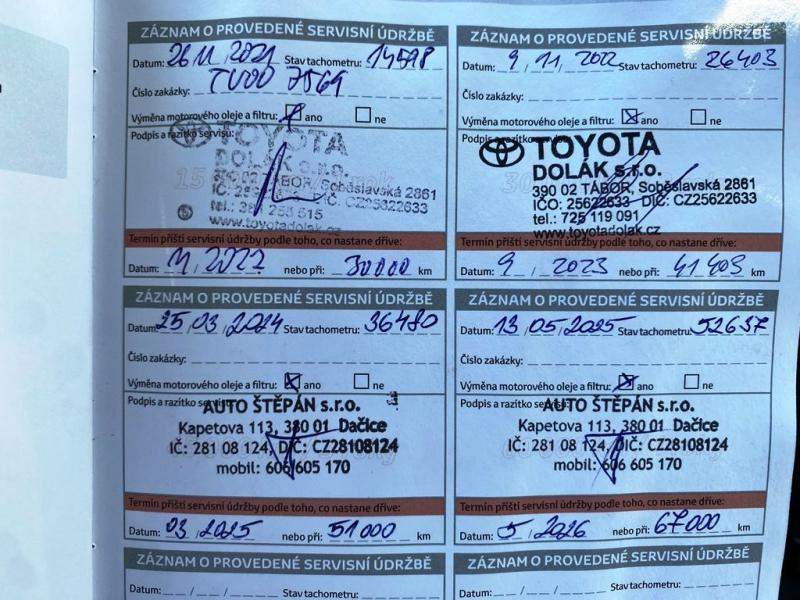 ZÁZNAM O PROVEDENÉ SERVISNÍ ÚDRŽBĚ
Datum: 26 11 2021 Stav tachometru: 14598
Číslo zakázky: TVOD 7569
Výměna motorového oleje a filtru: ano ne
Podpis a razítko servisu:
TOYOTA
DOLÁK s.r.o.
390 02 TÁBOR, Soběslavská 2861
IČ: DIČ: CZ25622633
tel.: 381 255 515
www.toyotadolak.cz
Termín příští servisní údržby podle toho, co nastane dříve:
Datum: 11, 2022 nebo při: 30000 km
ZÁZNAM O PROVEDENÉ SERVISNÍ ÚDRŽBĚ
Datum: 9, 11, 2022 Stav tachometru: 26403
Číslo zakázky:
Výměna motorového oleje a filtru: ano ne
Podpis a razítko servisu:
TOYOTA
DOLÁK s.r.o.
390 02 TÁBOR, Soběslavská 2861
IČO: 25622633 DIČ: CZ25622633
tel.: 725 119 091
www.toyotadolak.cz
Termín příští servisní údržby podle toho, co nastane dříve:
Datum: 9, 2023 nebo při: 41403 km
ZÁZNAM O PROVEDENÉ SERVISNÍ ÚDRŽBĚ
Datum: 25, 03, 2024 Stav tachometru: 36480
Číslo zakázky:
Výměna motorového oleje a filtru: ano ne
Podpis a razítko servisu:
AUTO ŠTĚPÁN s.r.o.
Kapetova 113, 380 01 Dačice
IČ: 281 08 124, DIČ: CZ28108124
mobil: 606 605 170
Termín příští servisní údržby podle toho, co nastane dříve:
Datum: 03, 2025 nebo při: 51000 km
ZÁZNAM O PROVEDENÉ SERVISNÍ ÚDRŽBĚ
Datum: 13, 05, 2025 Stav tachometru: 52637
Číslo zakázky:
Výměna motorového oleje a filtru: ano ne
Podpis a razítko servisu:
AUTO ŠTĚPÁN s.r.o.
Kapetova 113, 380 01 Dačice
IČ: 281 08 124, DIČ: CZ28108124
mobil: 606 605 170
Termín příští servisní údržby podle toho, co nastane dříve:
Datum: 5, 2026 nebo při: 67000 km
ZÁZNAM O PROVEDENÉ SERVISNÍ ÚDRŽBĚ
Datum: Stav tachometru:
ZÁZNAM O PROVEDENÉ SERVISNÍ ÚDRŽBĚ
Datum: Stav tachometru: